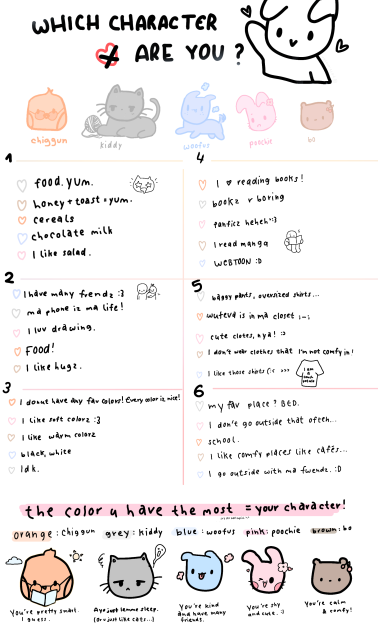 WHICH CHARACTER
ARE YOU ?
chiggun
kiddy
woofus
poochie
bo
1
food. yum.
honey + toast = yum.
cereals
chocolate milk
I like salad.
2
I have many frendz :3
ma phone iz ma life!
I luv drawing.
FOOD!
I like hugz.
3
I donut have any fav colors! Every color is nice!
I like soft colorz :3
I like warm colorz
black, white
Idk.
4
I ♥ reading books!
bookz r boring
fanficz heheh
I read manga
WEBTOON :D
5
baggy pants, oversized shirts...
wutevd is in ma closet
cute clothes, nya!
I don't wear clothes that I'm not comfy in!
I like those shirts
I am a couch potato
6
my fav place? BED.
I don't go outside that often...
school.
I like comfy places like cafés...
I go outside with ma fwendz. :D
the color u have the most = your character!
orange : chiggun grey : kiddy blue : woofus pink : poochie brown : bo
You're pretty smart. I guess.
Aye just lemme sleep. (or u just like cats...)
You're kind and have many friends.
You're shy and cute. :3
You're calm & comfy!